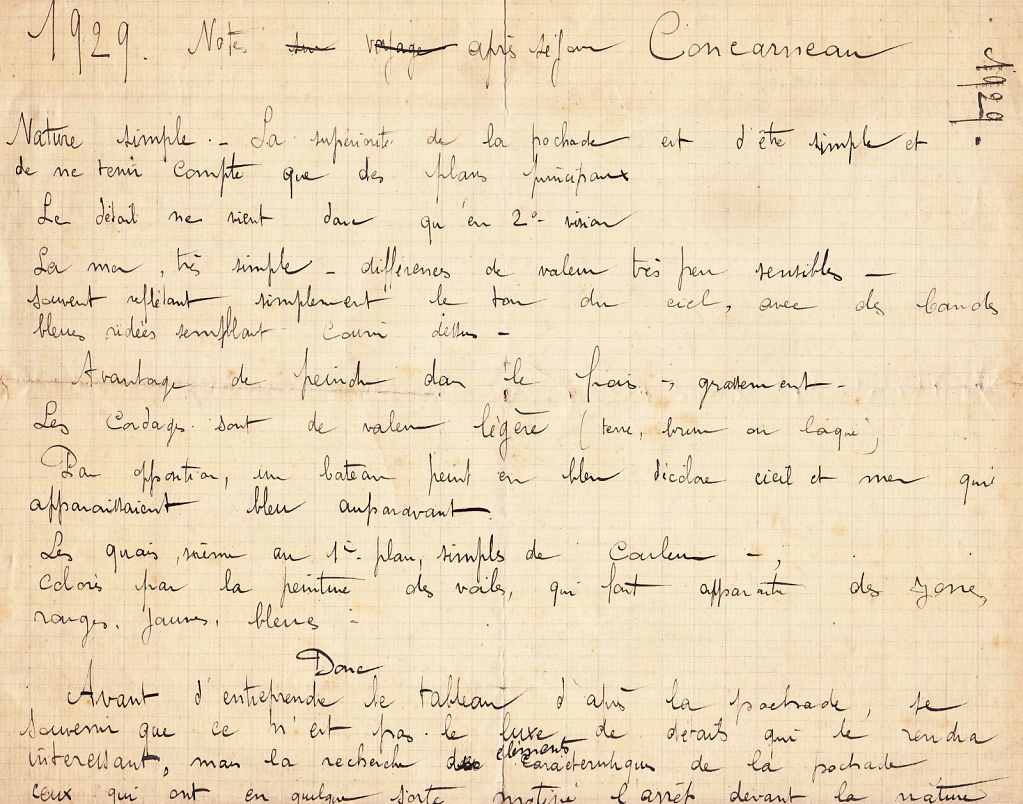 1929. Notes sur voyage après séjour Concarneau
1929.
Nature simple. - La supériorité de la pochade est d'être simple et
de ne tenir compte que des plans principaux
Le détail ne vient donc qu'en 2e vision
La mer, très simple - différences de valeur très peu sensibles -
souvent reflétant simplement le ton du ciel, avec des bandes
bleues ridées semblant courir dessus -
Avantage de peindre dans le frais -, grassement -
Les cordages sont de valeur légère (terre, brune ou laque)
Par opposition, un bateau peint en bleu décolore ciel et mer qui
apparaissaient bleu auparavant.
Les quais, même au 1er plan, simples de couleur -,
colorés par la peinture des voiles, qui font apparaitre des zones
rouges, jaunes, bleues -
Donc
Avant d'entreprendre le tableau d'après la pochade, se
souvenir que ce n'est pas le luxe de détails qui le rendra
intéressant, mais la recherche des éléments caractéristiques de la pochade
ceux qui ont en quelque sorte motivé l'arrêt devant la nature